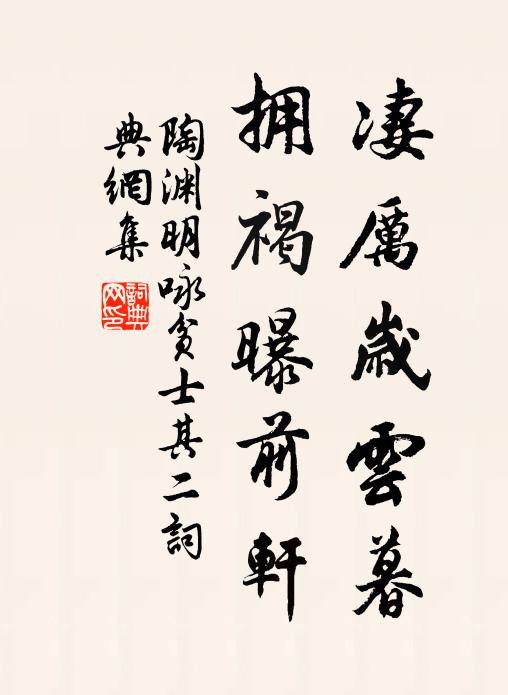 凄厲歲雲暮
拥褐曝前軒
陶渊明咏贫士其二詞
典網集
詞典
网印